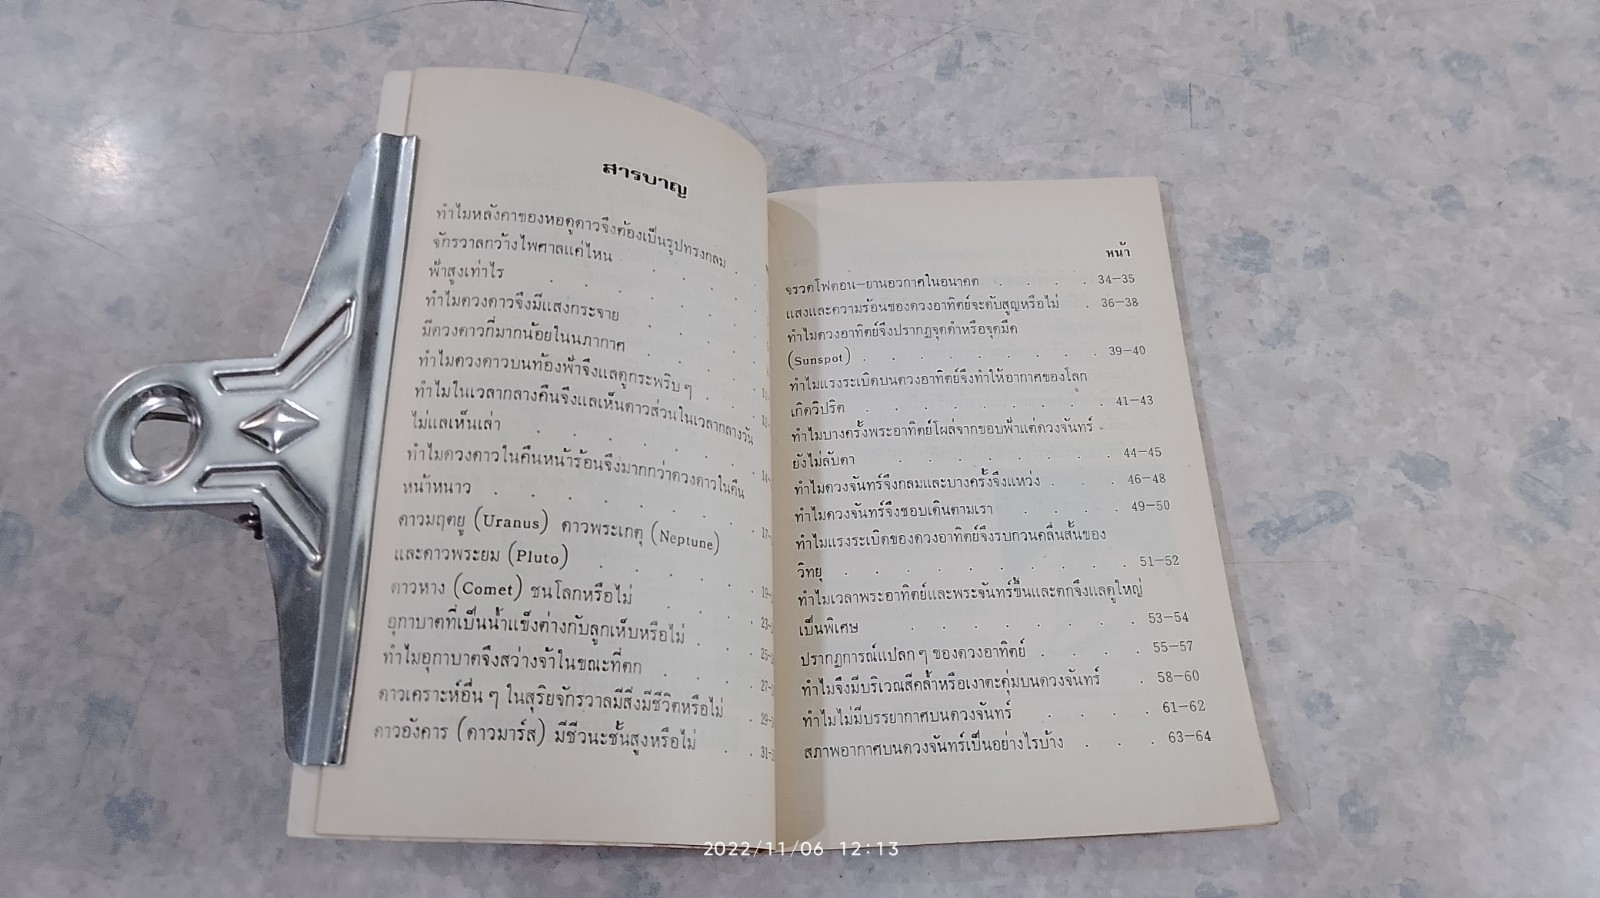 สารบาญ
ทำไมหลังคาของหอดูดาวจึงต้องเป็นรูปทรงกลม .
จักรวาลกว้างไพศาลแค่ไหน . . .
ฟ้าสูงเท่าไร . . . . . .
ทำไมดวงดาวจึงมีแสงกระจาย . . .
มีดวงดาวกี่มากน้อยในนภากาศ . . .
ทำไมดวงดาวบนท้องฟ้าจึงแลดูกระพริบ ๆ . .
ทำไมในเวลากลางคืนจึงแลเห็นดาวส่วนในเวลากลางวัน
ไม่แลเห็นเล่า . . . . . .
ทำไมดวงดาวในคืนหน้าร้อนจึงมากกว่าดวงดาวในคืน
หน้าหนาว . . . . . . 17-
ดาวมฤตยู (Uranus) ดาวพระเกตุ (Neptune)
และดาวพระยม (Pluto) . . . . . 19-
ดาวหาง (Comet) ชนโลกหรือไม่ . . . . 23-
อุกาบาตที่เป็นน้ำแข็งต่างกับลูกเห็บหรือไม่ . . 25-
ทำไมอุกาบาตจึงสว่างจ้าในขณะที่ตก . . . 27-
ดาวเคราะห์อื่น ๆ ในสุริยจักรวาลมีสิ่งมีชีวิตหรือไม่ . 29-
ดาวอังคาร (ดาวมาร์ส) มีชีวนะชั้นสูงหรือไม่ . . 31-
หน้า
จรวดโฟตอน—ยานอวกาศในอนาคต . . . . 34—35
แสงและความร้อนของดวงอาทิตย์จะดับสูญหรือไม่ . 36—38
ทำไมดวงอาทิตย์จึงปรากฏจุดดำหรือจุดมืด
(Sunspot) . . . . . . . . . 39—40
ทำไมแรงระเบิดบนดวงอาทิตย์จึงทำให้อากาศของโลก
เกิดวิปริต . . . . . . . . . 41—43
ทำไมบางครั้งพระอาทิตย์โผล่จากขอบฟ้าแต่ดวงจันทร์ .
ยังไม่ลับตา . . . . . . . . 44—45
ทำไมดวงจันทร์จึงกลมและบางครั้งจึงแหว่ง . . . 46—48
ทำไมดวงจันทร์จึงชอบเดินตามเรา . . . . 49—50
ทำไมแรงระเบิดของดวงอาทิตย์จึงรบกวนคลื่นสั้นของ
วิทยุ . . . . . . . . . . 51—52
ทำไมเวลาพระอาทิตย์และพระจันทร์ขึ้นและตกจึงแลดูใหญ่
เป็นพิเศษ . . . . . . . 53—54
ปรากฏการณ์แปลก ๆ ของดวงอาทิตย์ . . . . 55—57
ทำไมจึงมีบริเวณสีคล้ำหรือเงาตะคุ่มบนดวงจันทร์ . 58—60
ทำไมไม่มีบรรยากาศบนดวงจันทร์ . . . . 61—62
สภาพอากาศบนดวงจันทร์เป็นอย่างไรบ้าง . . . 63—64
2022/11/06 12:13